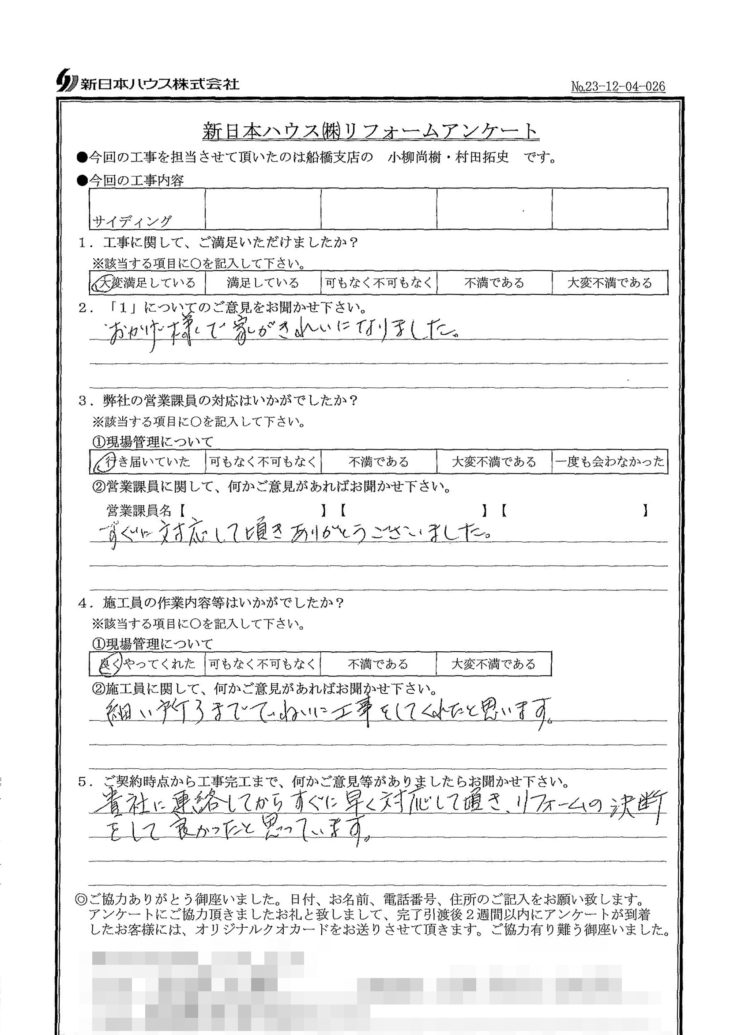 新日本ハウス株式会社
№23-12-04-026
新日本ハウス㈱リフォームアンケート
●今回の工事を担当させて頂いたのは船橋支店の 小柳尚樹・村田拓史 です。
●今回の工事内容
サイディング
1．工事に関して、ご満足いただけましたか？
※該当する項目に○を記入して下さい。
大変満足している 満足している 可もなく不可もなく 不満である 大変不満である
2．「1」についてのご意見をお聞かせ下さい。
おかげ様で家がきれいになりました。
3．弊社の営業課員の対応はいかがでしたか？
※該当する項目に○を記入して下さい。
①現場管理について
行き届いていた 可もなく不可もなく 不満である 大変不満である 一度も会わなかった
②営業課員に関して、何かご意見があればお聞かせ下さい。
営業課員名【 】【 】【 】
すぐに対応して頂きありがとうございました。
4．施工員の作業内容等はいかがでしたか？
※該当する項目に○を記入して下さい。
①現場管理について
良くやってくれた 可もなく不可もなく 不満である 大変不満である
②施工員に関して、何かご意見があればお聞かせ下さい。
細い所ろまでていねいに工事をしてくれたと思います。
5．ご契約時点から工事完工まで、何かご意見等がありましたらお聞かせ下さい。
貴社に連絡してからすぐに早く対応して頂き、リフォームの決断
をして良かったと思っています。
◎ご協力ありがとう御座いました。日付、お名前、電話番号、住所のご記入をお願い致します。
アンケートにご協力頂きましたお礼と致しまして、完了引渡後2週間以内にアンケートが到着
したお客様には、オリジナルクオカードをお送りさせて頂きます。ご協力有り難う御座いました。